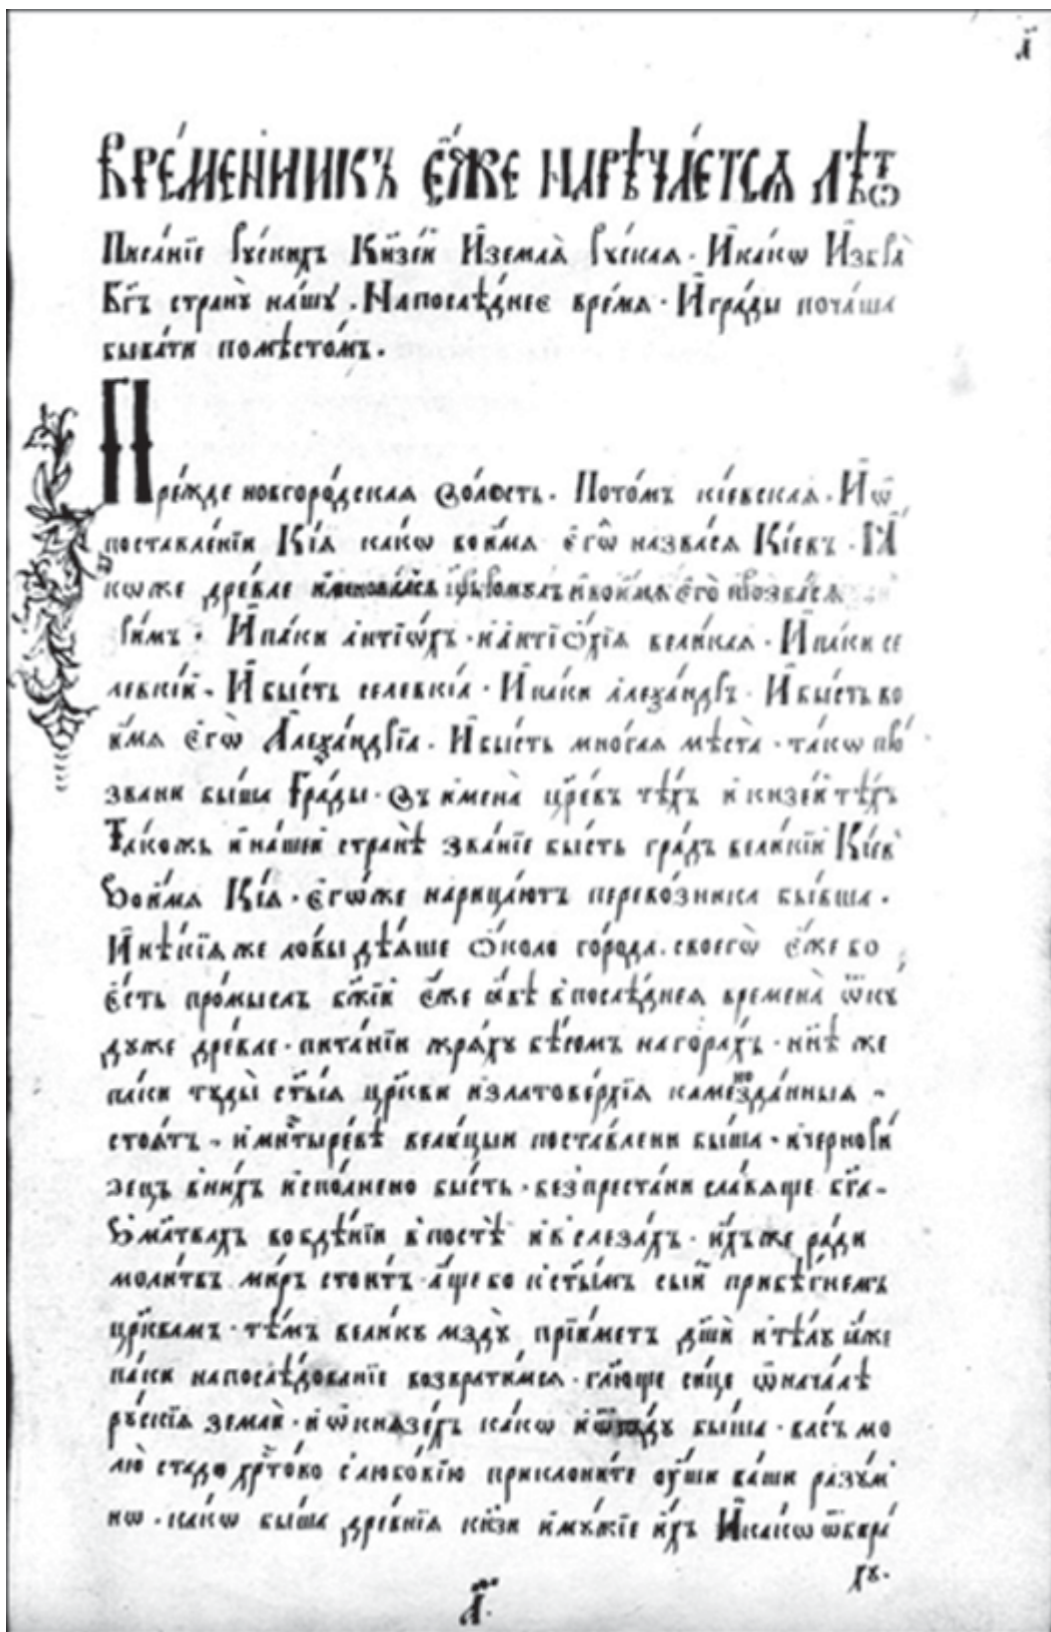 а҃
Вре́менникъ є҆́же нарѣча́етсѧ лѣто
Писа́нїе рꙋ́скихъ Кн҃зе́й И҆землѧ̀ рꙋ́скаѧ · И҆ка́кѡ И҆збра̀
Бг҃ъ странꙋ̀ на́шꙋ . Напослѣ́днее вре́мѧ · И҆гра́ды поча́ша
быва́ти помѣсто́мъ .
Пре́жде новгоро́дскаѧ во́лость . Пото́мъ кі́евскаѧ · И҆ ѡ҆
поставле́нїи Кі́ѧ ка́кѡ во и҆́мѧ є҆гѡ̀ назва́сѧ Кі́евъ · Ꙗ҆́
коже дре́вле и҆менова́сѧ црь ромꙋлъ и҆во и҆мѧ є҆го̀ прозва́сѧ
ри́мъ . И҆па́ки а҆нтїѡ́хъ · и҆а҆нтїо́хїѧ вели́каѧ · И҆па́ки се
левкі́й . И҆ бы́сть селевкі́а · И҆ па́ки а҆леѯа́ндръ · И҆ бы́сть во
и҆́мѧ є҆гѡ̀ А҆леѯа́ндрїа . И҆ бы́сть мно́гаѧ мѣ́ста · та́кѡ про́
звани бы́ша Гра́ды · въ и҆мена̀ цр҃е́въ тѣ́хъ и҆ кн҃зе́й тѣ́хъ
Та́кожь и҆ на́шей странѣ̀ зва́нїе бы́сть гра́дъ вели́кїй Кі́евъ
Во и҆́мѧ Кі́ѧ · є҆гѡ́же нарица́ютъ перево́зника бы́вша .
И҆ нѣ́кїѧ же ло́вы дѣ́ѧше о҆́коло го́рода . своегѡ̀ є҆́же бо
є҆́сть про́мыслъ бж҃їй є҆́же ꙗ҆вѣ̀ в послѣ́днеѧ времена̀ ѿкꙋ
дꙋже дре́вле · пита́нїи жрѧ́хꙋ бѣ́сомъ на гора́хъ · нн҃ѣ же
па́ки тꙋды̀ ст҃ы́ѧ цр҃кви и҆ златове́рхїѧ камензда́нныѧ
но
стоѧ́тъ . и҆ мн҃тыре́вѣ вели́цыи поставлени бы́ша · и҆ черно́ри
зецъ в ни́хъ и҆спо́лнено бы́сть · безпреста́ни сла́вѧще бг҃а ·
В мл҃твахъ во бдѣ́нїи в постѣ̀ и҆ в слеза́хъ · и҆́хъ же ра́ди
моли́твъ ми́ръ стои́тъ · а҆́ще бо к ст҃ы́мъ сы́й прибѣ́гнемъ
цр҃квамъ · тѣ́мъ вели́кꙋ мздꙋ̀ прїи́метъ дш҃ѝ и҆ тѣ́лꙋ и҆́же
па́ки на послѣ́дованїе возврати́мсѧ · гл҃юще си́це ѡ҆ нача́лѣ
рꙋ́скїѧ землѝ · и҆ ѡ҆ кнѧзе́хъ ка́кѡ и҆ ѿкꙋ́дꙋ бы́ша · ва́съ мо
лю̀ ста́до хрⷭ҇то́во с любо́вїю приклони́те ᲂу҆́ши ва́ши разꙋ́м
нѡ . ка́кѡ бы́ша дре́внїѧ кн҃зи и҆ мꙋ́жїе и҆́хъ И҆ ка́кѡ ѿвра́
хꙋ .
а҃